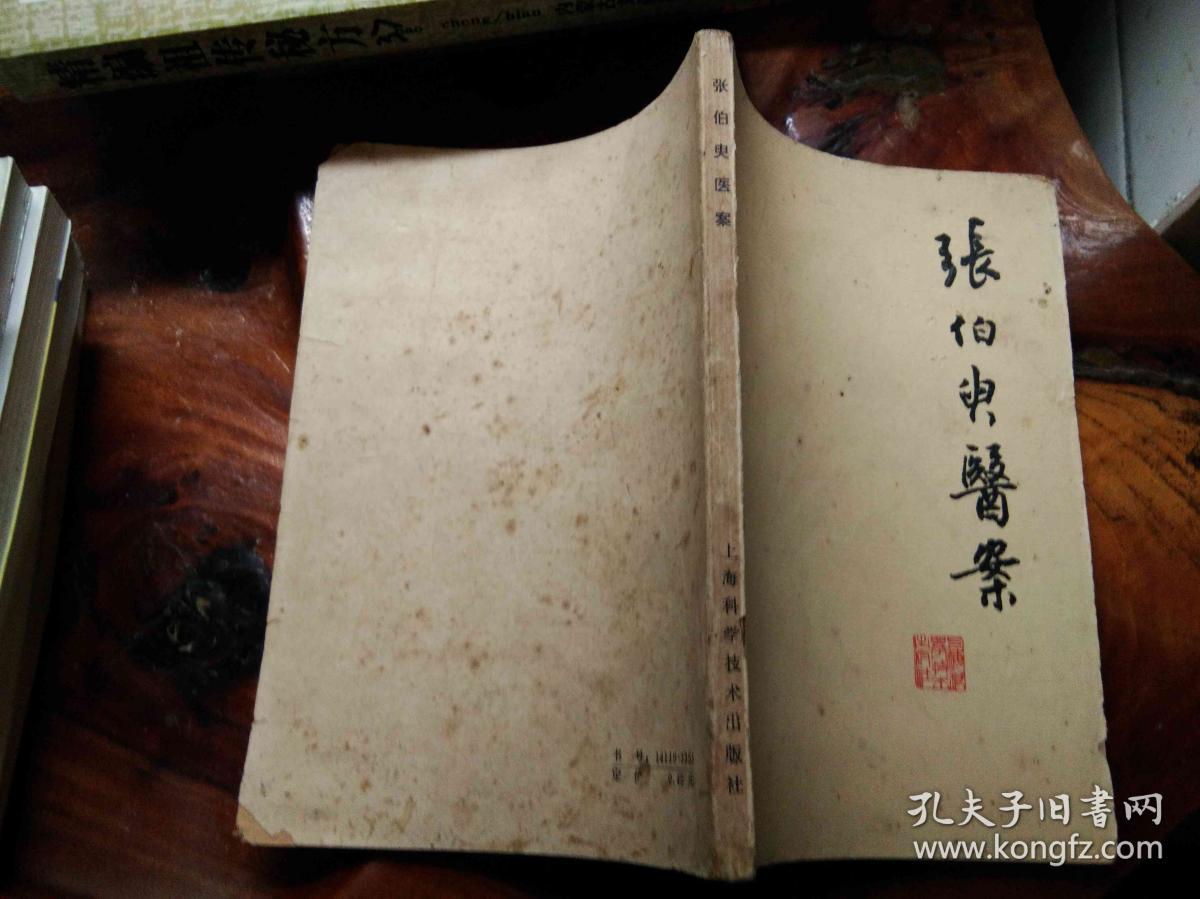 祖传秘方
cheng/bian
张伯臾医案
上海科学技术出版社
張伯臾醫案
书号:14119·
定价
元
孔夫子旧书网
www.kongfz.com